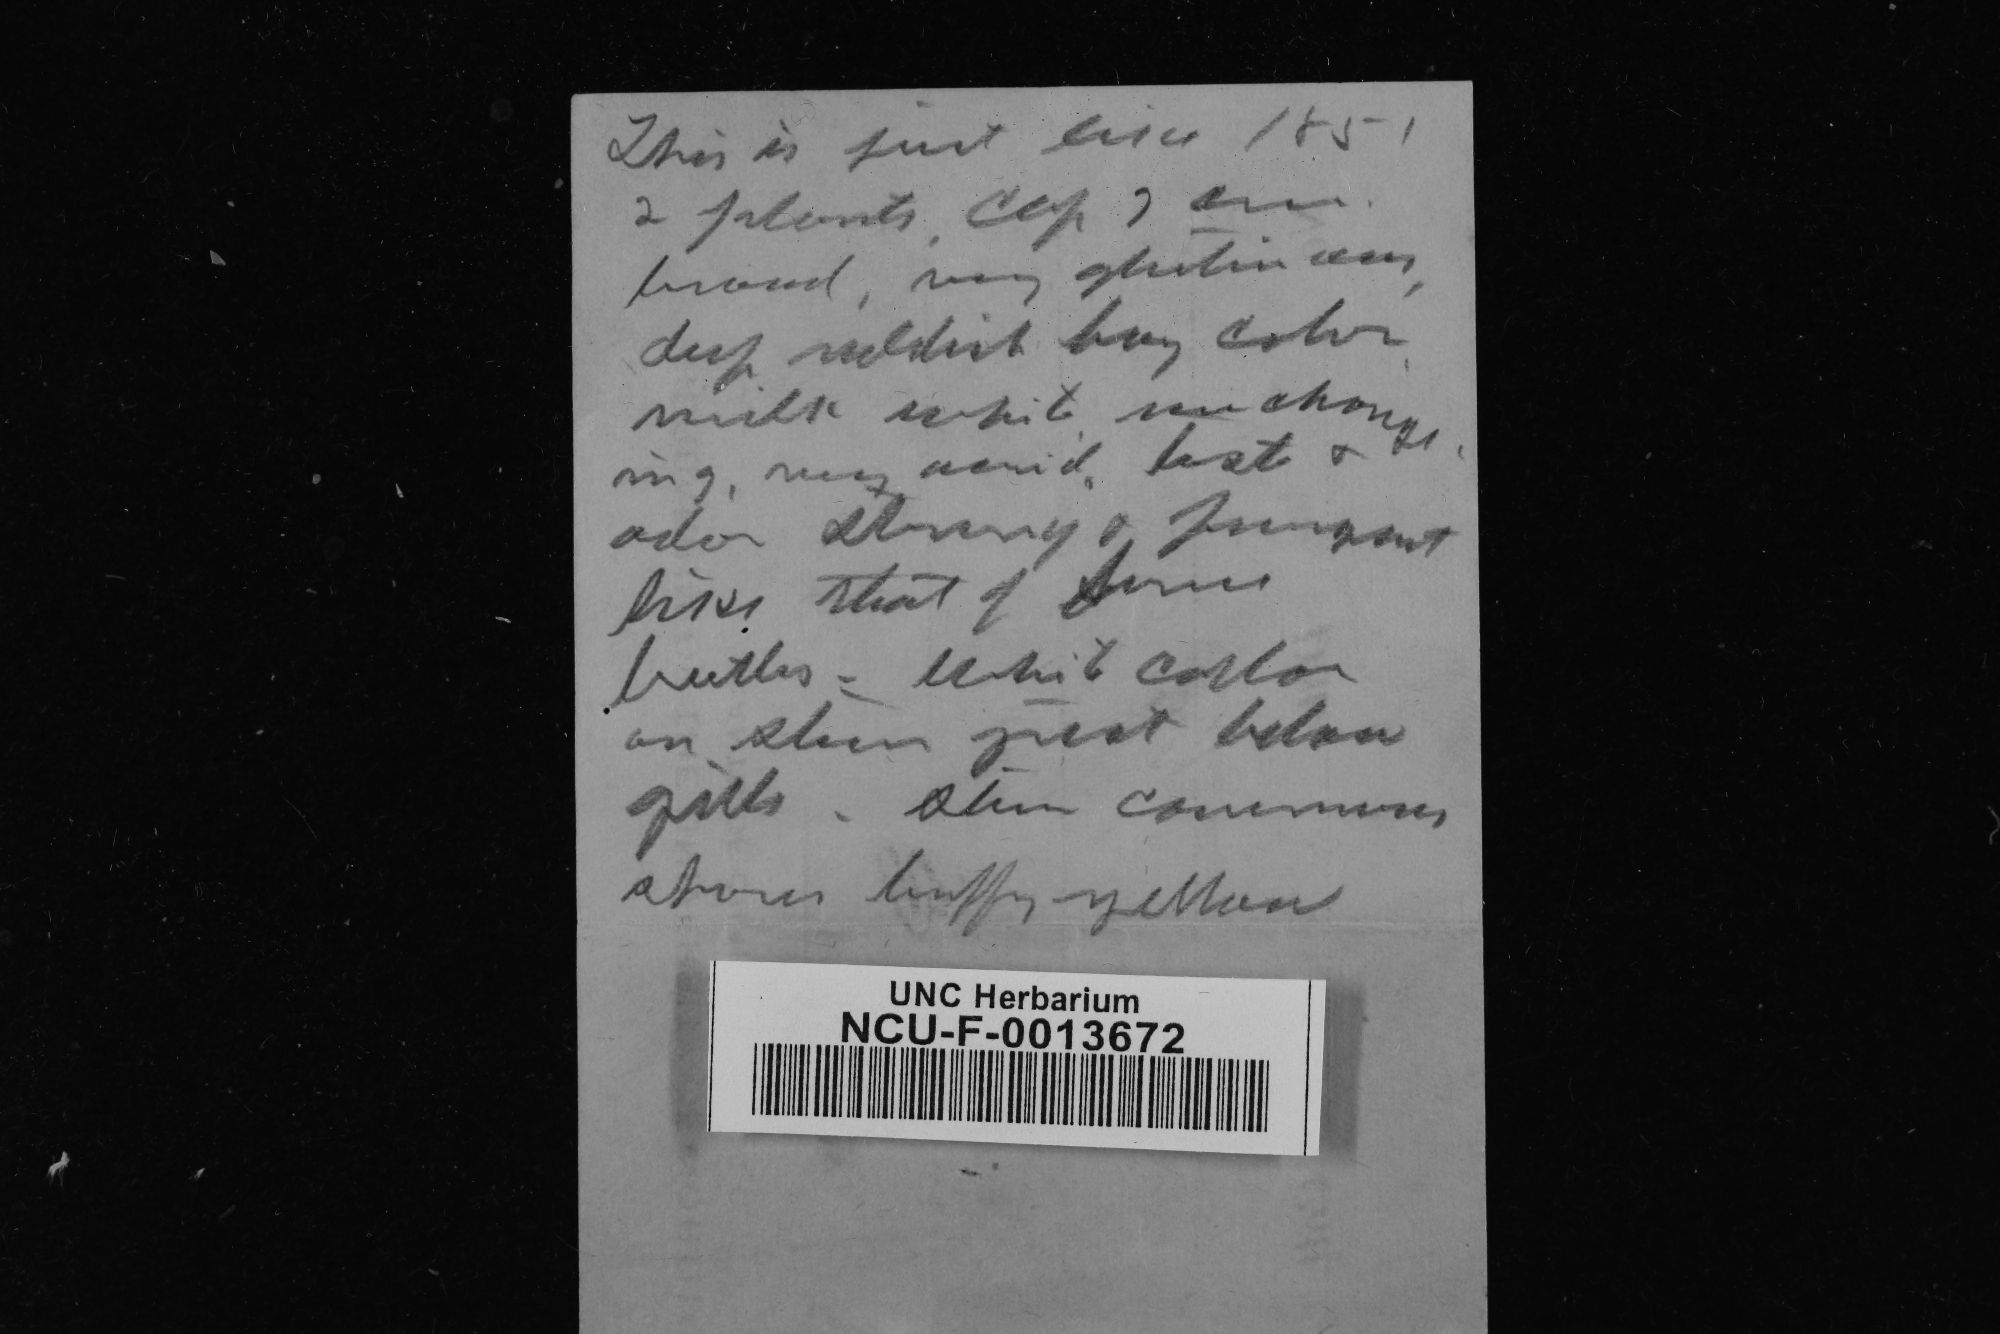 This is just like 1851
2 plants, Cap 7 cm.
broad, very glutinous,
deep reddish bay color.
milk white, unchange-
ing, very acrid. taste &
odor strong & pungent
like that of some
beetles - White collar
on stem just below
gills - stem
spores buffy-yellow
UNC Herbarium
NCU-F-0013672